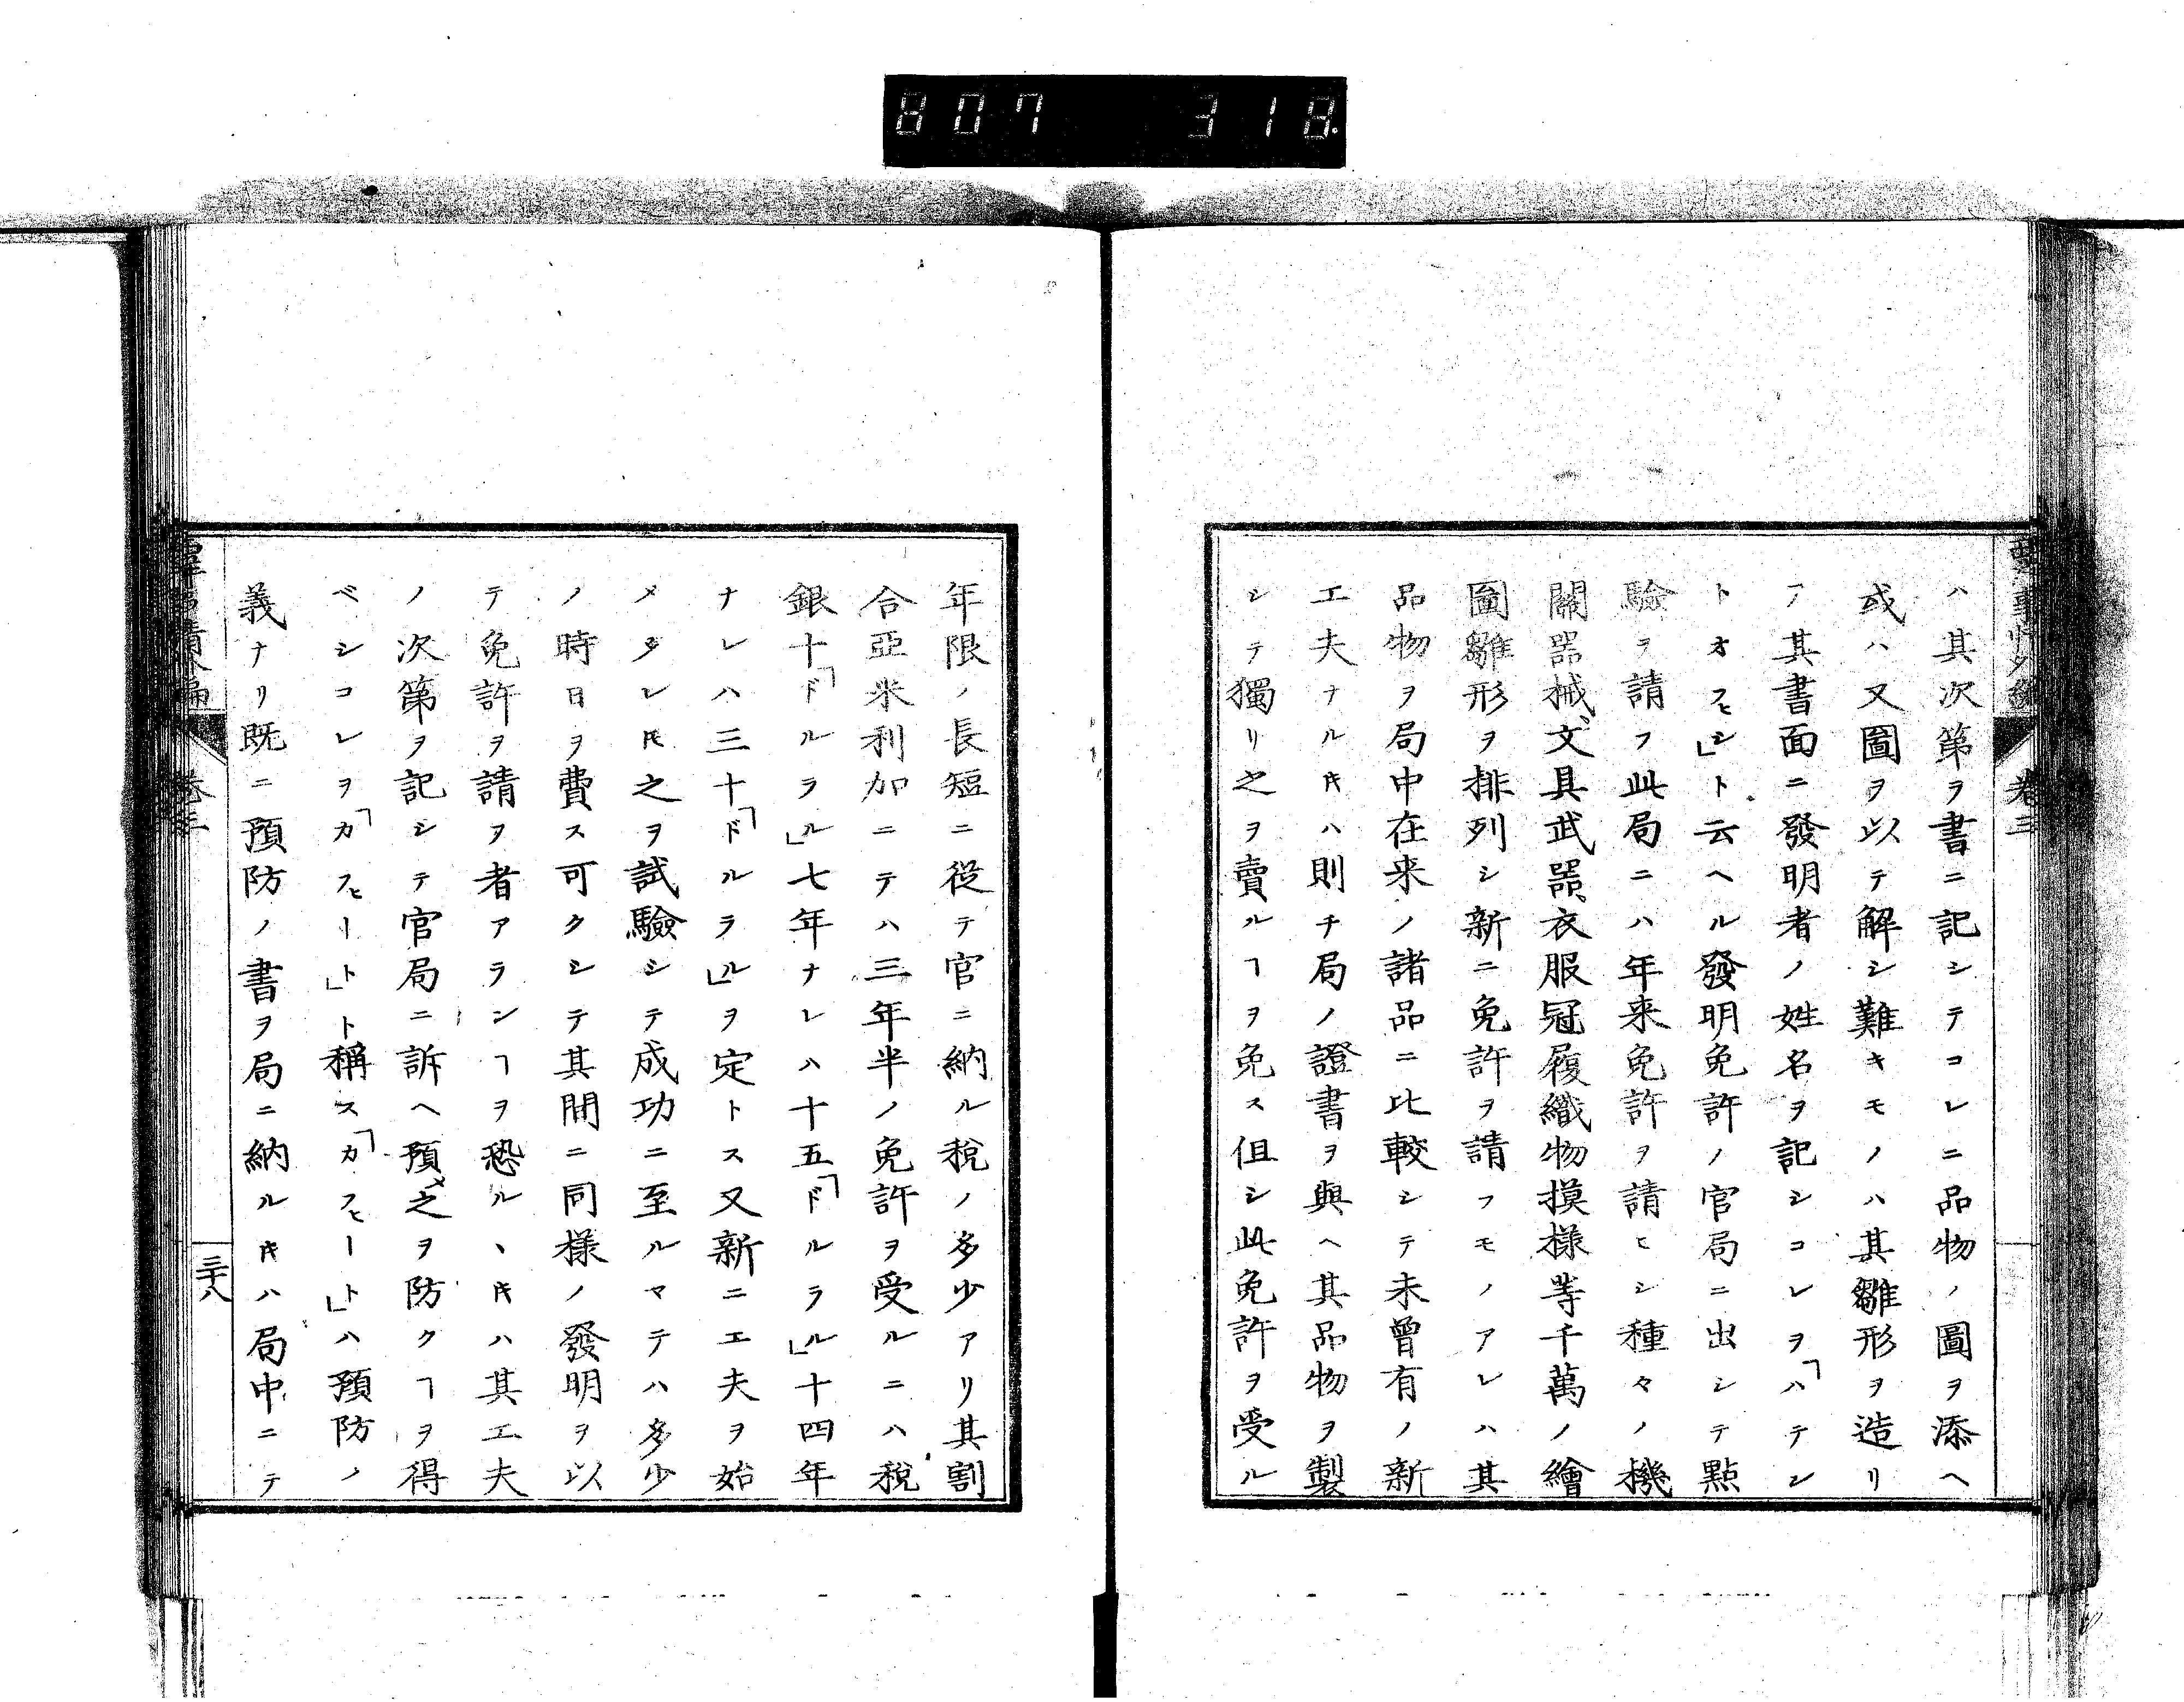 807 318.
西洋事情外編
卷三
ハ其次第ヲ書ニ記シテコレニ品物ノ圖ヲ添ヘ
或ハ又圖ヲ以テ解シ難キモノハ其雛形ヲ造リ
テ其書面ニ發明者ノ姓名ヲ記シコレヲ「ハテン
トオフヒシ」ト云ヘル發明免許ノ官局ニ出シテ點
驗ヲ請フ此局ニハ年来免許ヲ請ヒシ種々ノ機
關器械、文具武器、衣服冠履織物摸樣等千萬ノ繪
圖雛形ヲ排列シ新ニ免許ヲ請フモノアレハ其
品物ヲ局中在来ノ諸品ニ比較シテ未曾有ノ新
工夫ナルキハ則チ局ノ證書ヲ與ヘ其品物ヲ製
シテ獨リ之ヲ賣ルヿヲ免ス但シ此免許ヲ受ル
年限ノ長短ニ從テ官ニ納ル税ノ多少アリ其割
合亞米利加ニテハ三年半ノ免許ヲ受ルニハ税
銀十「ドルラル」七年ナレハ十五「ドルラル」十四年
ナレハ三十「ドルラル」ヲ定トス又新ニ工夫ヲ始
メタレ𪜈之ヲ試驗シテ成功ニ至ルマテハ多少
ノ時日ヲ費ス可クシテ其間ニ同樣ノ發明ヲ以
テ免許ヲ請ヲ者アランヿヲ恐ルヽキハ其工夫
ノ次第ヲ記シテ官局ニ訴ヘ預之ヲ防クヿヲ得
ベシコレヲ「カフヒート」ト稱ス「カフヒート」ハ預防ノ
義ナリ既ニ預防ノ書ヲ局ニ納ルキハ局中ニテ
卷三
三十八